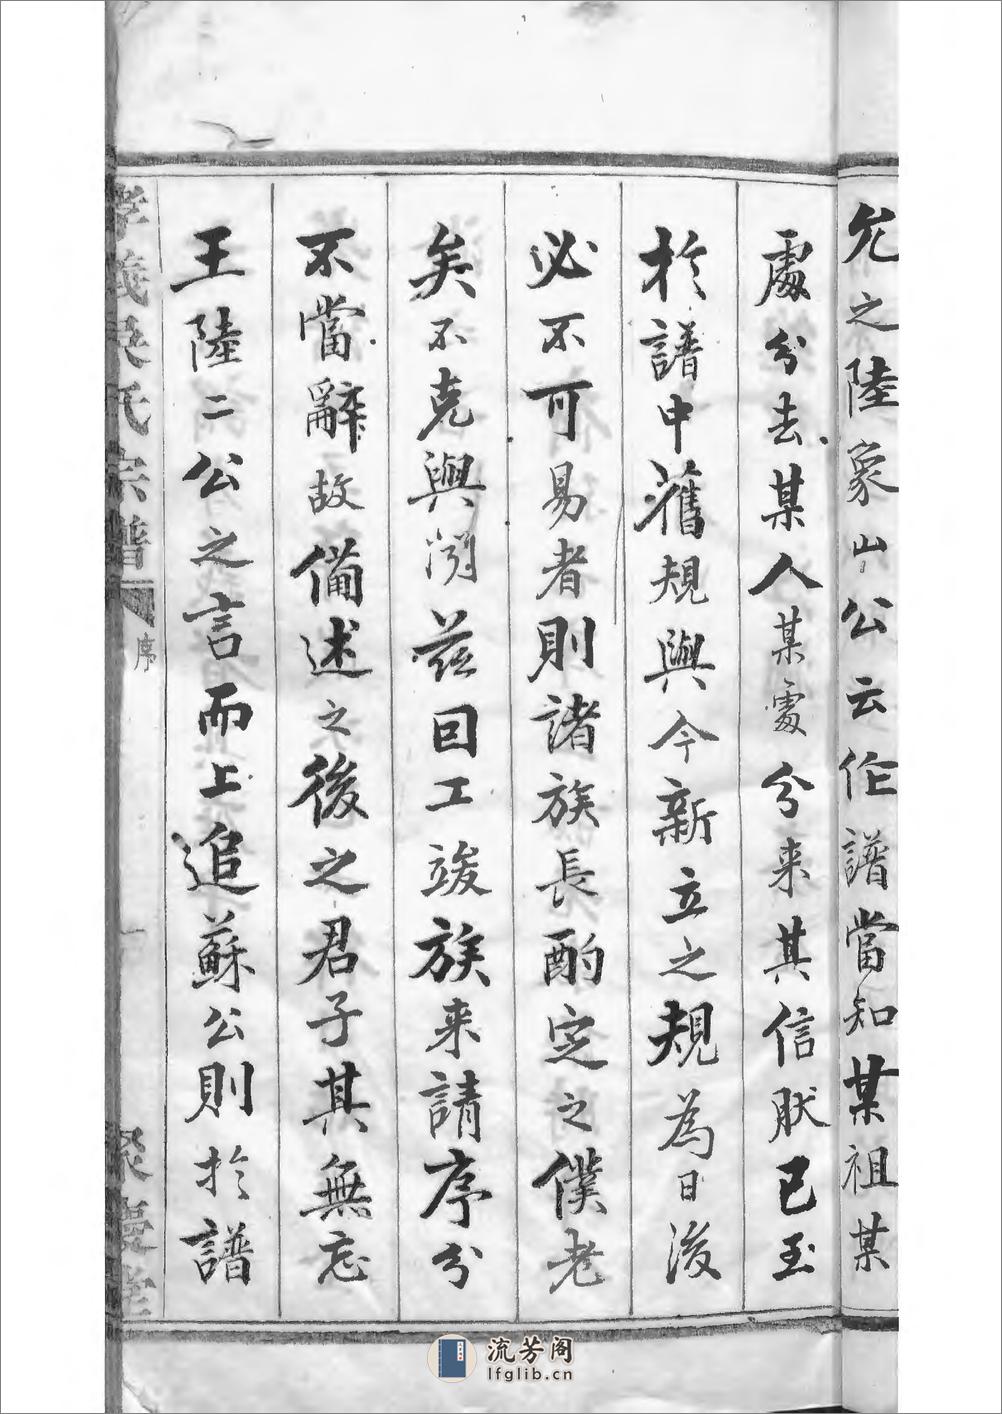 允之陸象山公云作譜當知某祖某
處分去某人某處分来其信朕已玉
扵譜中舊規與今新立之規為日後
必不可易者則諸族長酌定之僕老
矣不克與閱茲囬工竣族来請序分
不當辭故備述之後之君子其無忘
王陸二公之言而上追蘇公則扵譜
孝義吳氏宗譜
序
聚慶堂
流芳阁
lfglib.cn